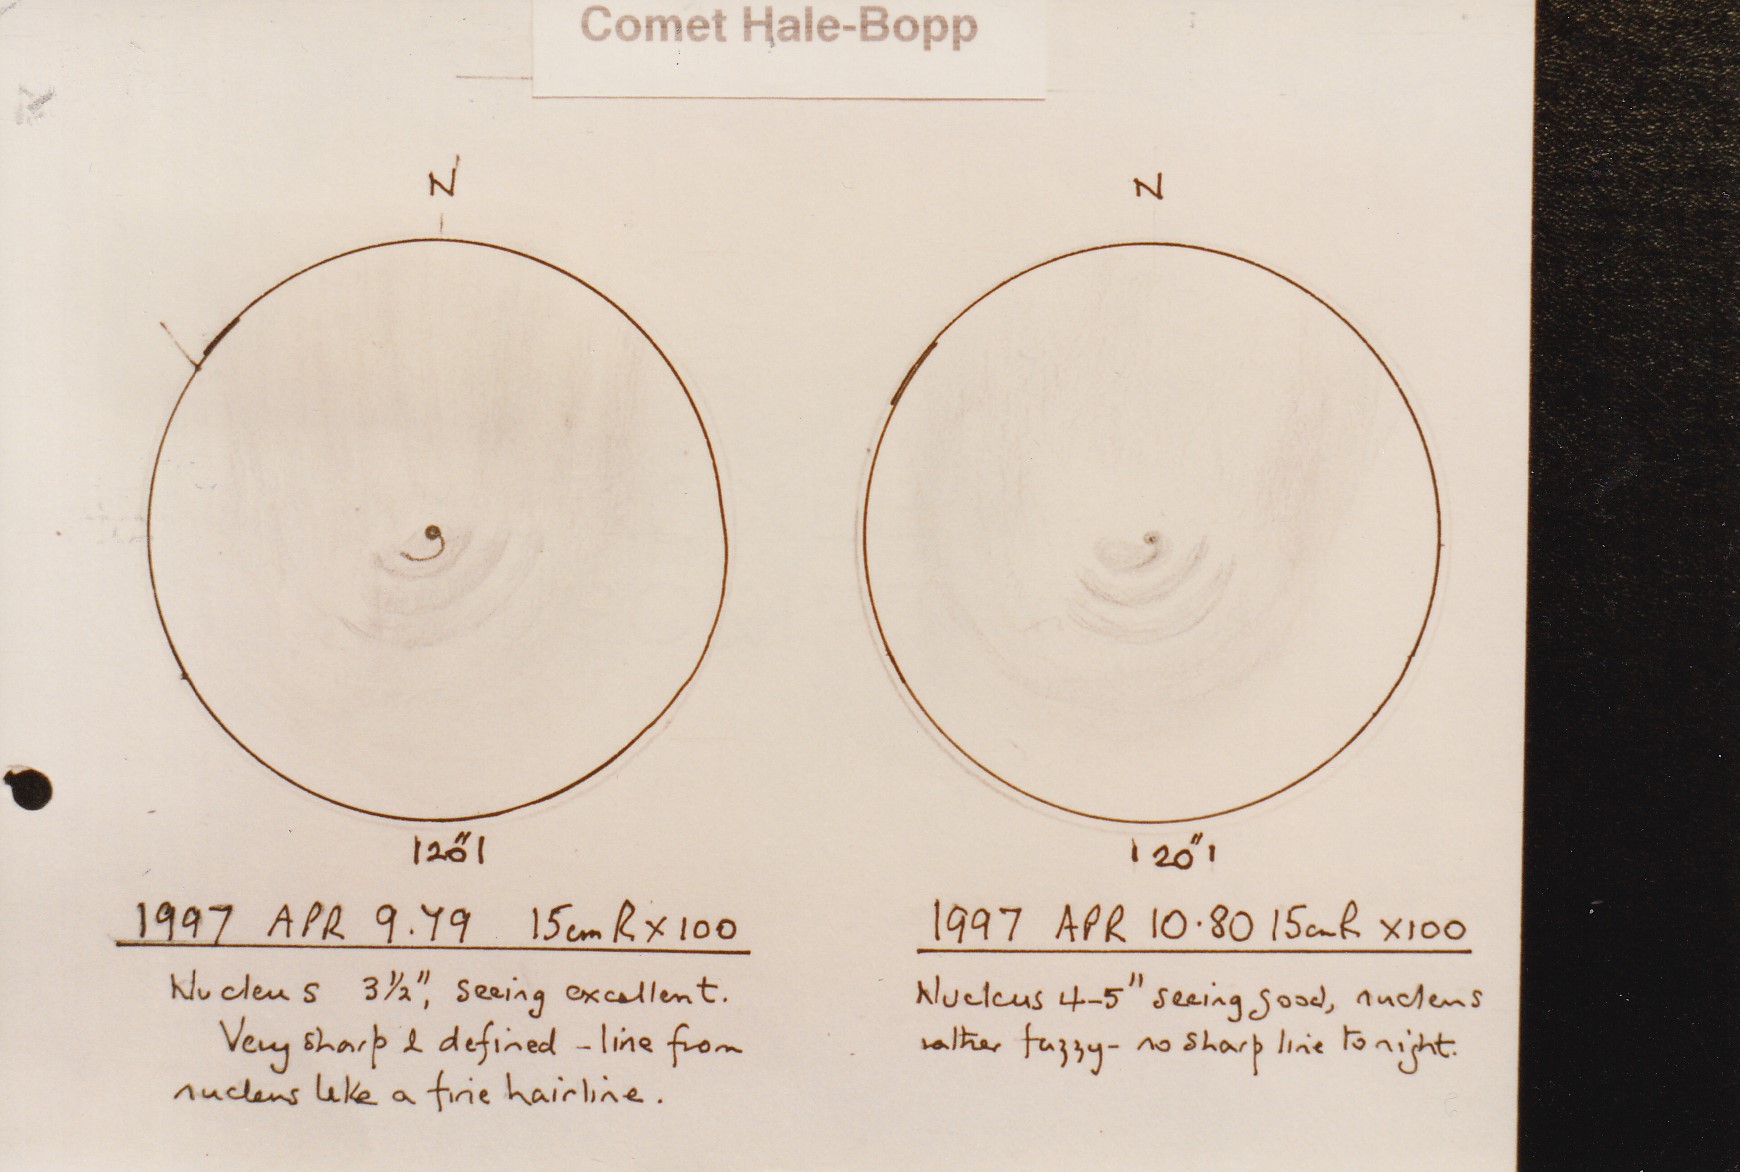 Comet Hale-Bopp
N
N
|20"|
|20"|
1997 APR 9.79 15cm R x 100
Nucleus 3½", seeing excellent.
Very sharp & defined - line from
nucleus like a fine hairline.
1997 APR 10.80 15cm R x100
Nucleus 4-5" seeing good, nucleus
rather fuzzy - no sharp line tonight.